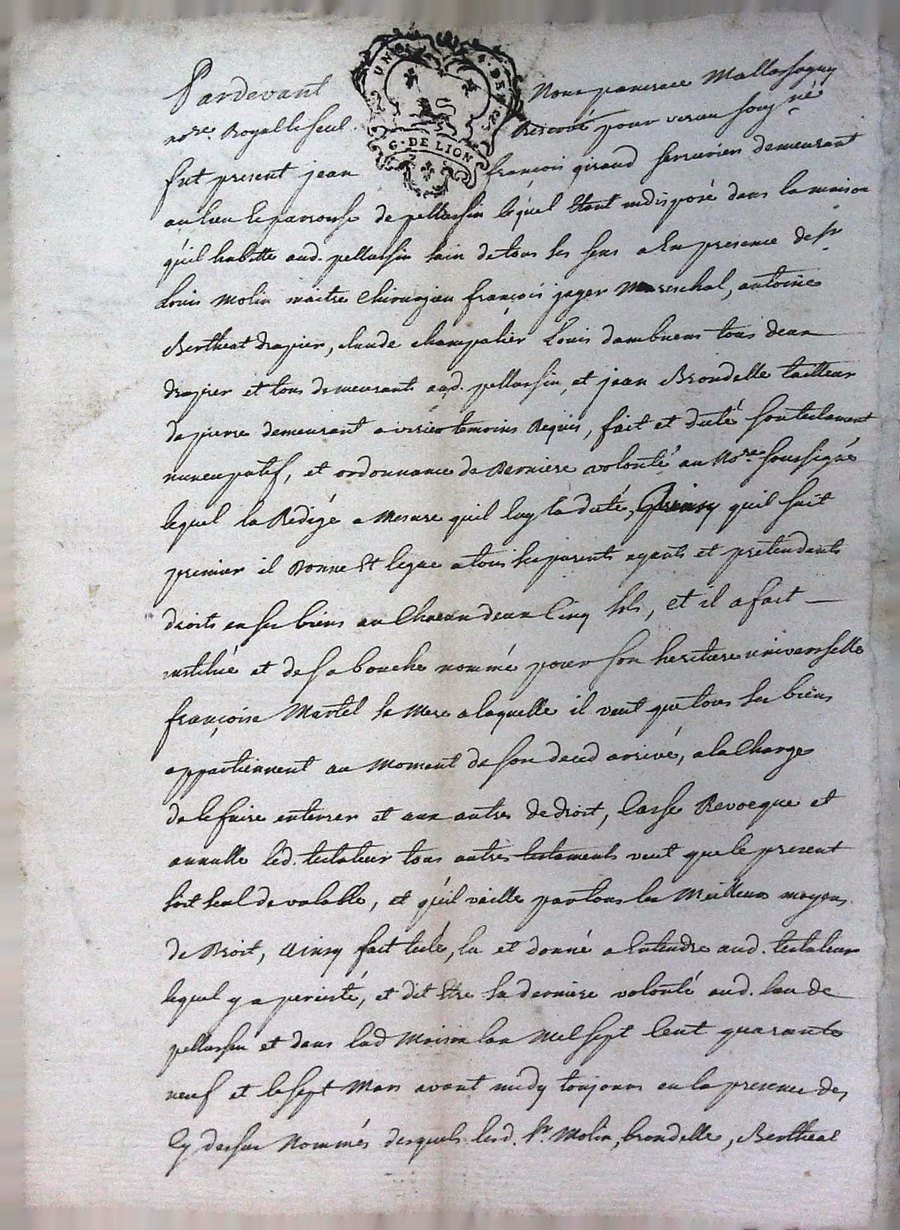 Pardevant Nous pancrace Mallassagny
no.re Royal le seul Rescouit pour veran soug.né
fut present jean françois giraud serrurier demeurant
au lieu le parroisse de pellussin lequel Etant indisposé dans la maison
qu'il habitte aud. pellussin sain de tous ses sens a En presence de sr
Louis Molin maitre Chirurgien françois jager Mareschal, antoine
Bertheat drapier, claude champalier Louis dambuent tous deux
drapier et tous demeurants aud. pellussin, et jean Brondelle tailleur
de pierre demeurant a temoins Requis, fait et dicté son testament
nuncupatif, et ordonnance de Derniere volonté au No.re soussigné
lequel la Rédigé a Mesure quil luy la dicté, Ainsy quil suit
premier il Donne Et legue a tous ses parents ayants et pretendants
droits en ses biens au Chacun deux Cinq sols, et il a fait —
institué et de sa bouche nommé pour son heritiere universelle
françoise Martel sa Mere a laquelle il veut que tous ses biens
appartiennent au Moment de son deced arrivé, a la Charge
de le faire enterrer et aux autres de droit, Casse Revocque et
annulle led. testateur tous autres testaments veut que le present
soit seul de valable, et qu'il vaille par tous les Meilleurs moyens
de Droit, Ainsy fait leu, lu et donné a Entendre aud. testateur
lequel y a persisté, et dit Etre sa derniere volonté aud. lieu de
pellussin et dans lad Maison lan Mil sept Cent quarante
neuf et le sept Mars avant midy toujours en la presence des
Cy dessus Nommés desquels lesd. sr Molin, brondelle, Bertheat
UN S 4 DEN
G. DE LION